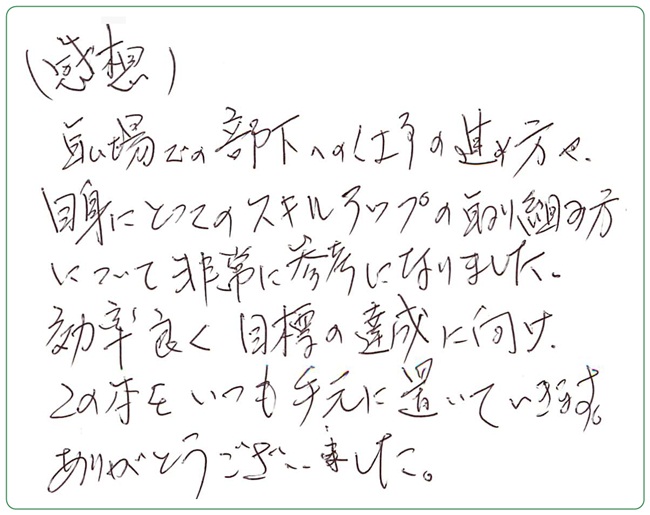 (感想)
職場での部下への仕事の進め方や、
自身にとってのスキルアップの取り組み方
について非常に参考になりました。
効率良く目標の達成に向け、
この本をいつも手元に置いていきます。
ありがとうございました。